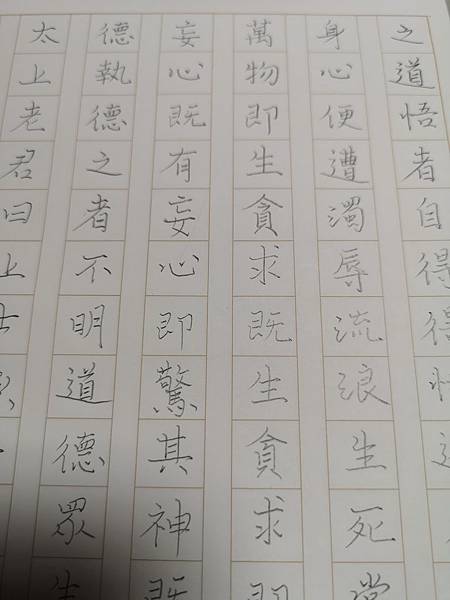 太上老君曰上士
德執德之者不明道德眾生
妄心既有妄心即驚其神既
萬物即生貪求既生貪求即
身心便遭濁辱流浪生死常
之道悟者自得得